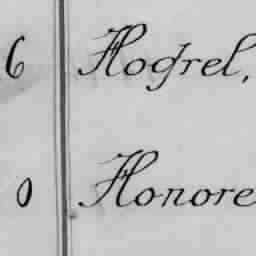 6 Hogrel,
0 Honore